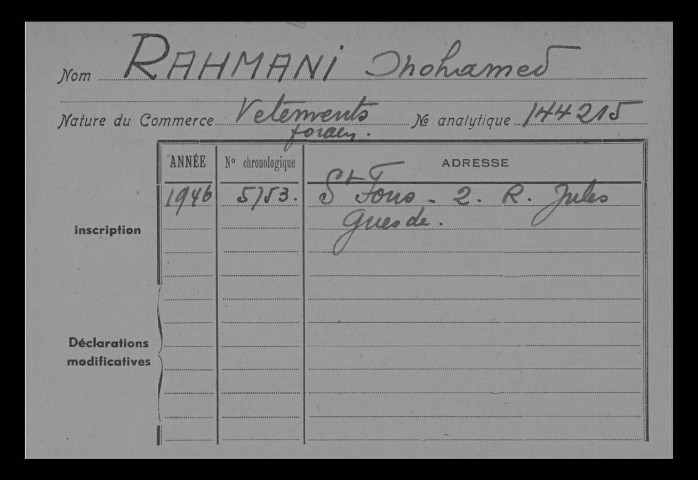 Nom RAHMANI Mohamed
Nature du Commerce Vetements № analytique 144215
forain.
ANNÉE N° chronologique ADRESSE
1946 5753. St Fons - 2. R. Jules
Guesde.
inscription
Déclarations
modificatives